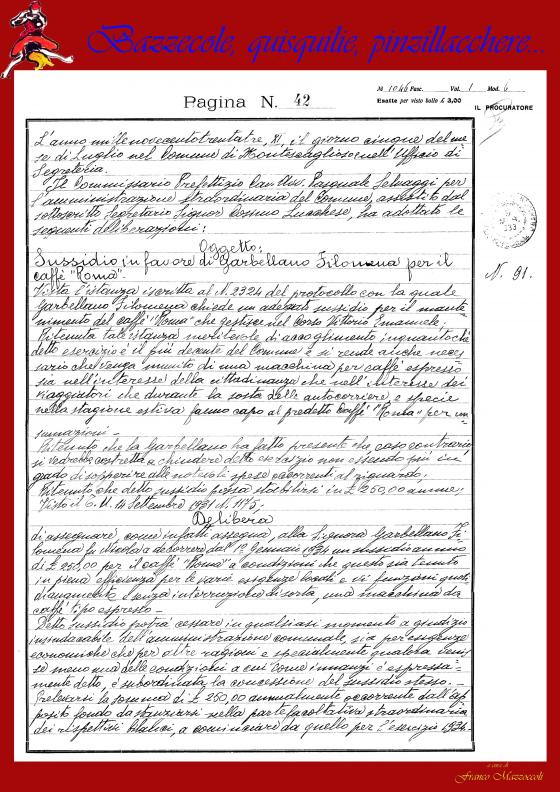 Bazzecole, quisquilie, pinzillacchere...
№ 1046 Fasc. Vol. 1 Mod. 6
Esatte per visto bollo £ 3,00
IL PROCURATORE
Pagina N. 42
L'anno millenovecentotrentatre, XI, il giorno cinque del me
se di Luglio nel Comune di Montescaglioso nell'Ufficio di
Segreteria.
Il Commissario Prefettizio Cav. Uff. Pasquale Selvaggi per
l'amministrazione straordinaria del Comune, assistito dal
sottoscritto Segretario Signor Cosimo Lucchese, ha adottato le
seguenti deliberazioni:
Oggetto:
Sussidio in favore di Garbellano Filomena per il
caffè "Roma".
N. 91.
Vista l'istanza iscritta al N. 2324 del protocollo con la quale
Garbellano Filomena chiede un adeguato sussidio per il mante
nimento del caffè "Roma" che gestisce nel Corso Vittorio Emanuele;
Ritenuta tale istanza meritevole di accoglimento inquantochè
detto esercizio è il più decente del Comune e si rende anche neces
sario che venga munito di una macchina per caffè espresso
sia nell'interesse della cittadinanza che nell'interesse dei
viaggiatori che durante la sosta delle autocorriere, e specie
nella stagione estiva fanno capo al predetto Caffè "Roma" per con
sumazioni -
Ritenuto che la Garbellano ha fatto presente che caso contrario
si vedrebbe costretta a chiudere detto esercizio non essendo più in
grado di sopperire alle notevoli spese occorrenti al riguardo;
Ritenuto che detto sussidio possa stabilirsi in £ 250,00 annue;
Visto il 14 Settembre 1931 N. 1175;
Delibera
di assegnare, come infatti assegna, alla Signora Garbellano Fi
lomena fu Nicola a decorrere dal 1° Gennaio 1934 un sussidio annuo
di £ 250,00 per il caffè "Roma" a condizioni che questo sia tenuto
in piena efficienza per le varie esigenze locali e vi funzioni quoti
dianamente e senza interruzione di sorta, una macchina da
caffè tipo espresso -
Detto sussidio potrà cessare in qualsiasi momento a giudizio
insindacabile dell'amministrazione comunale, sia per esigenze
economiche che per altre ragioni e specialmente qualora venis
se meno una delle condizioni a cui come innanzi è espressa-
mente detto, è subordinata la concessione del sussidio stesso. -
Prelevarsi la somma di £ 250,00 annualmente occorrente dall'ap
posito fondo da istituirsi nella parte facoltativa straordinaria
dei rispettivi bilanci, a cominciare da quello per l'esercizio 1934.
a cura di
Franco Mazzoccoli